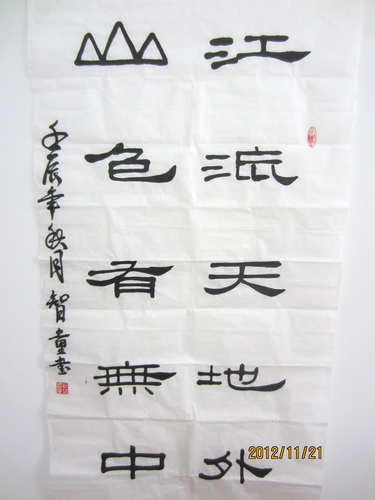 江流天地外
山色有無中
壬辰年秋月智童书
2012/11/21